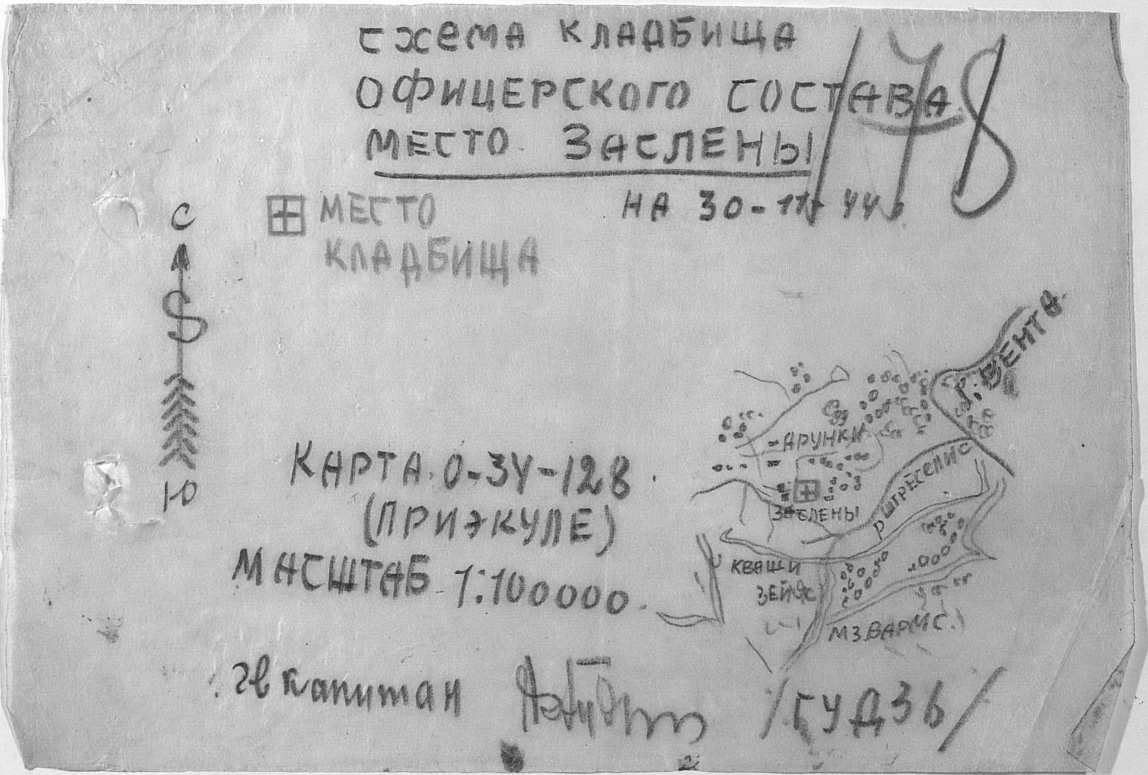 СХЕМА КЛАДБИЩА
ОФИЦЕРСКОГО СОСТАВА
МЕСТО ЗАСЛЕНЫ
178
НА 30-11-44
С
МЕСТО
КЛАДБИЩА
Р. ВЕНТА.
АРУНКИ
КАРТА О-34-128
(ПРИЭКУЛЕ)
Ю
МАСШТАБ 1:100000.
ЗАСЛЕНЫ
Р ШТРЕСЕЛИС
КВАШИ
ЗЕЙЯС
МЗ.ВАРМС.
гв капитан
/ГУДЗЬ/